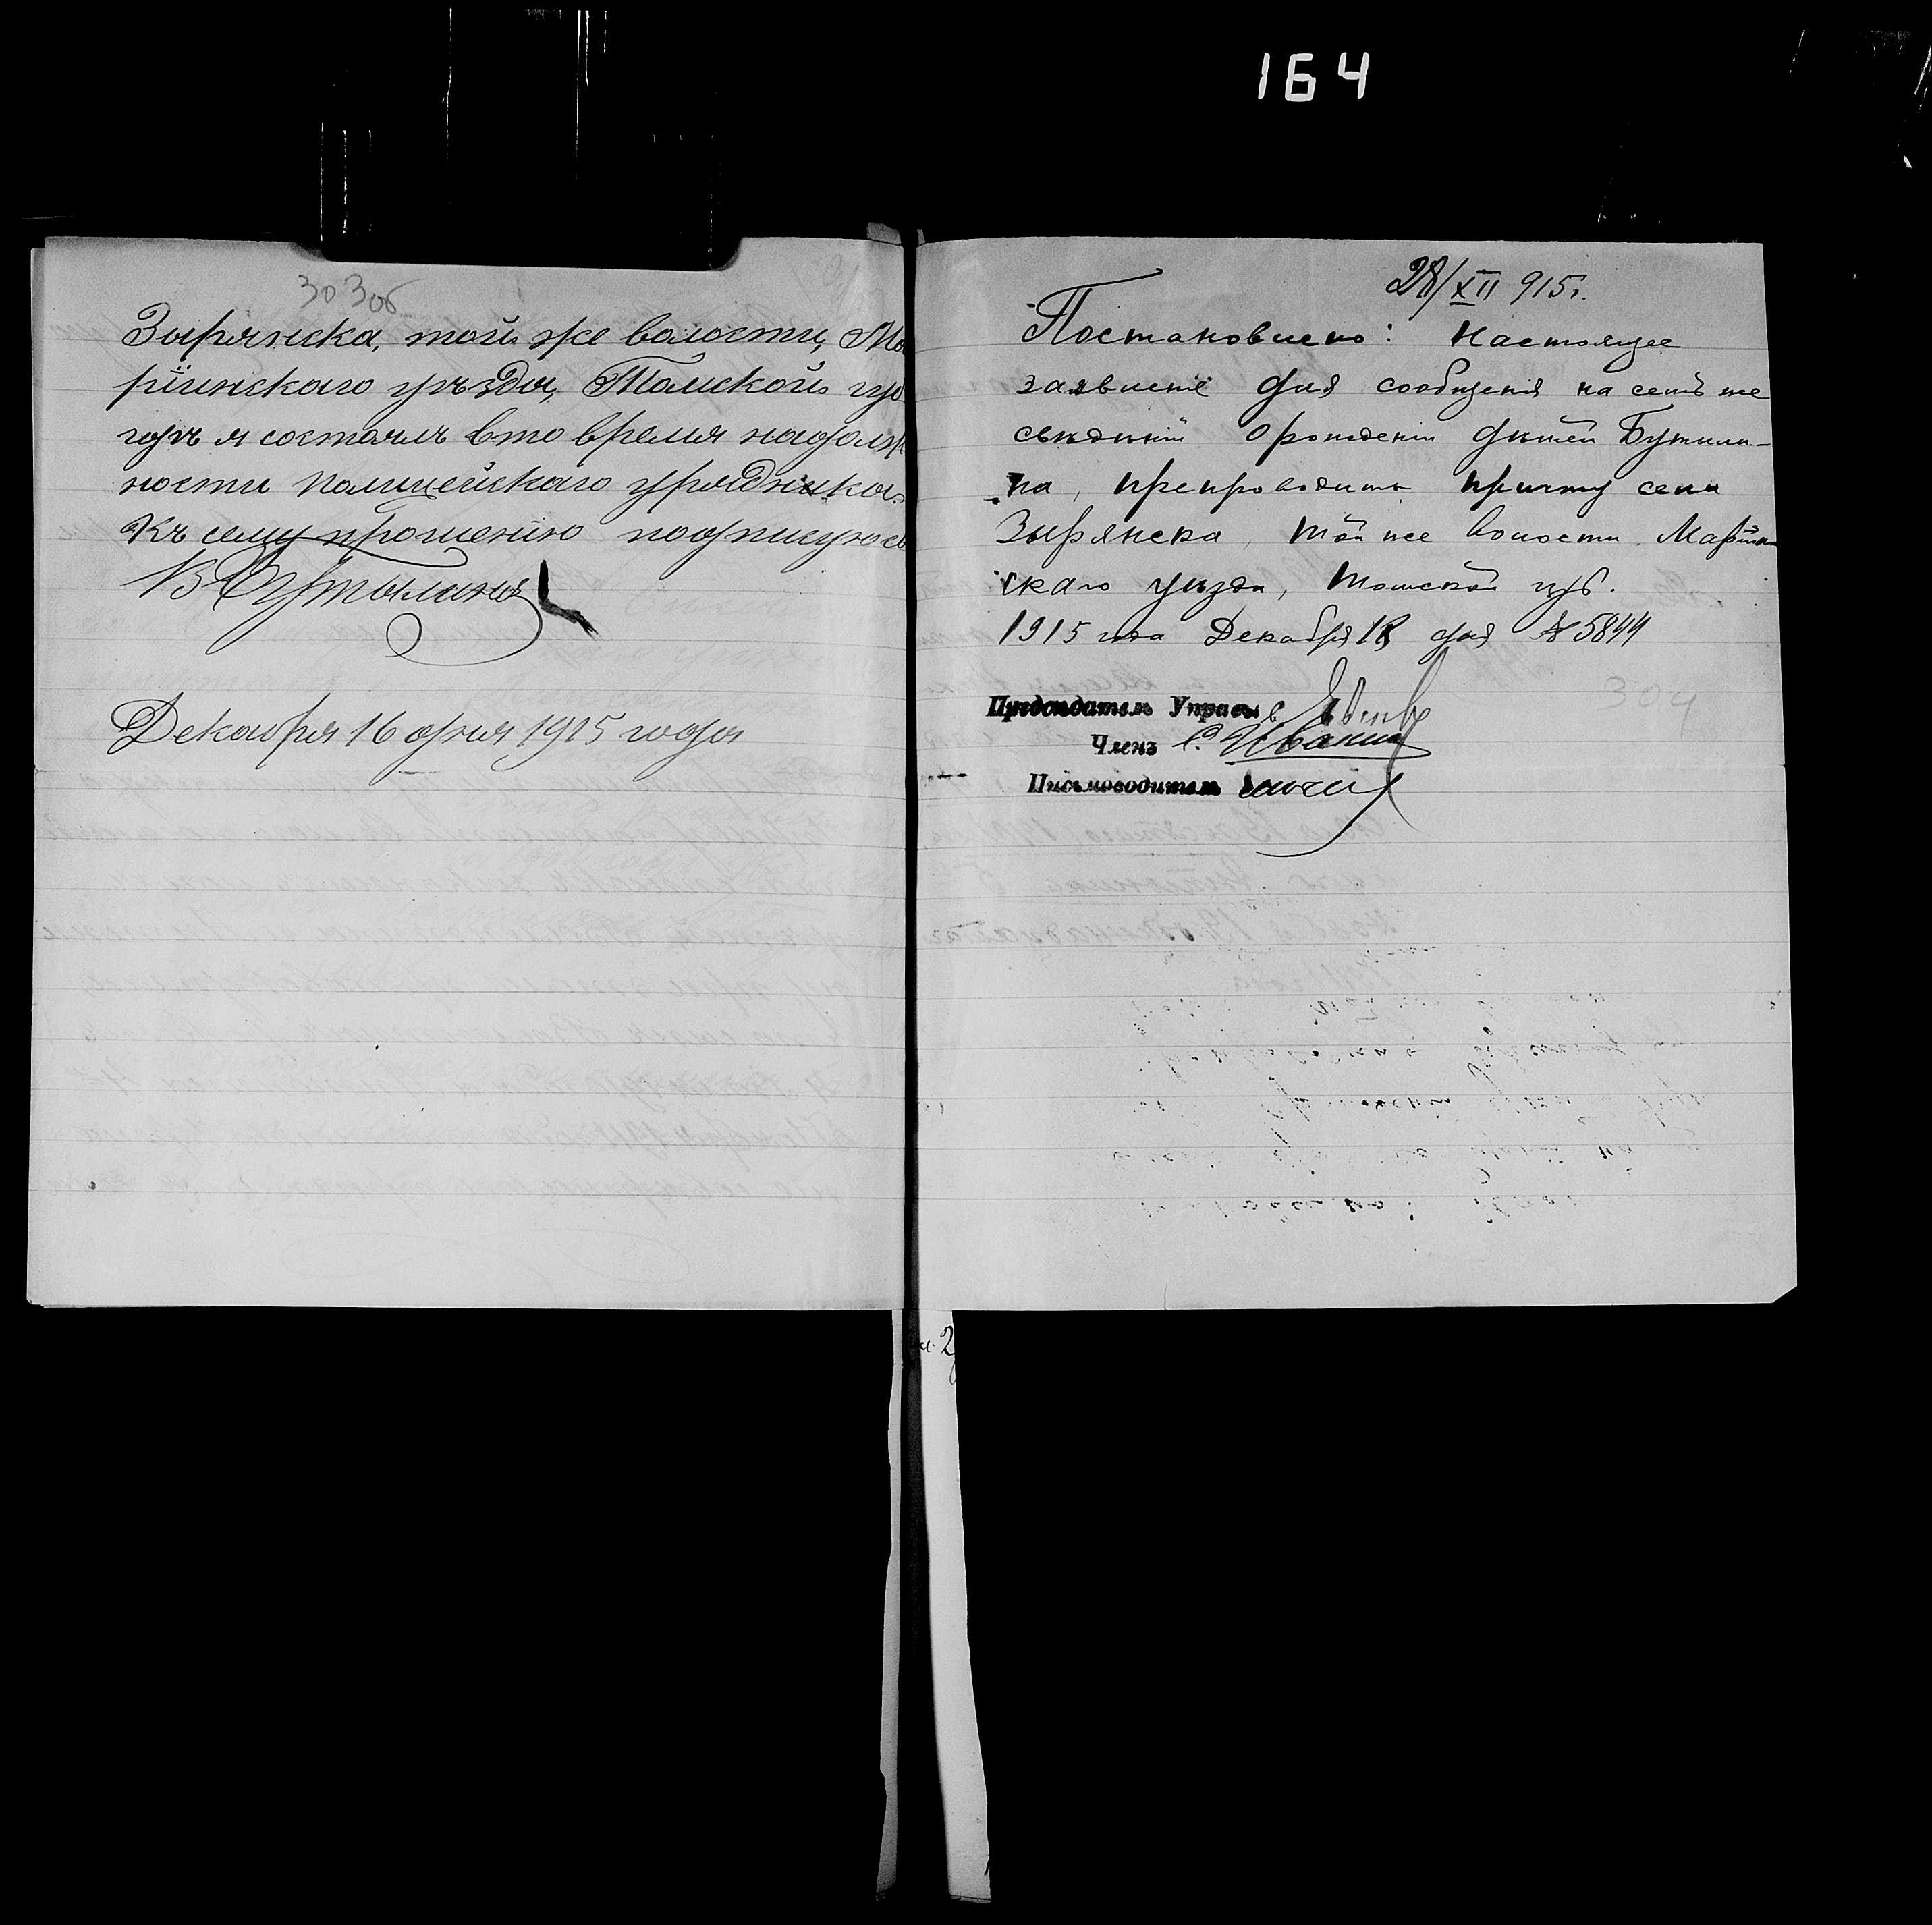 164
303об
Зырянска, той же волости, Ма
ріинскаго уѣзда, Томской гу
гдѣ я состоялъ в то время на долж
ности полицейскаго урядника.
Къ сему прошенію подписуюсь
В Бутылинъ
Декабря 16 дня 1915 года
28/XII 915 г.
Постановлено: Настоящее
заявленіе для сообщенія на семъ же
свѣдѣній о рожденіи дѣтей Бутыли-
на, препроводить причту села
Зырянска, той же волости Маріин-
скаго уѣзда, Томской губ.
1915 года Декабря 18 дня № 5844
304
Предсѣдатель Управы
Членъ С. Иванин
Письмоводитель